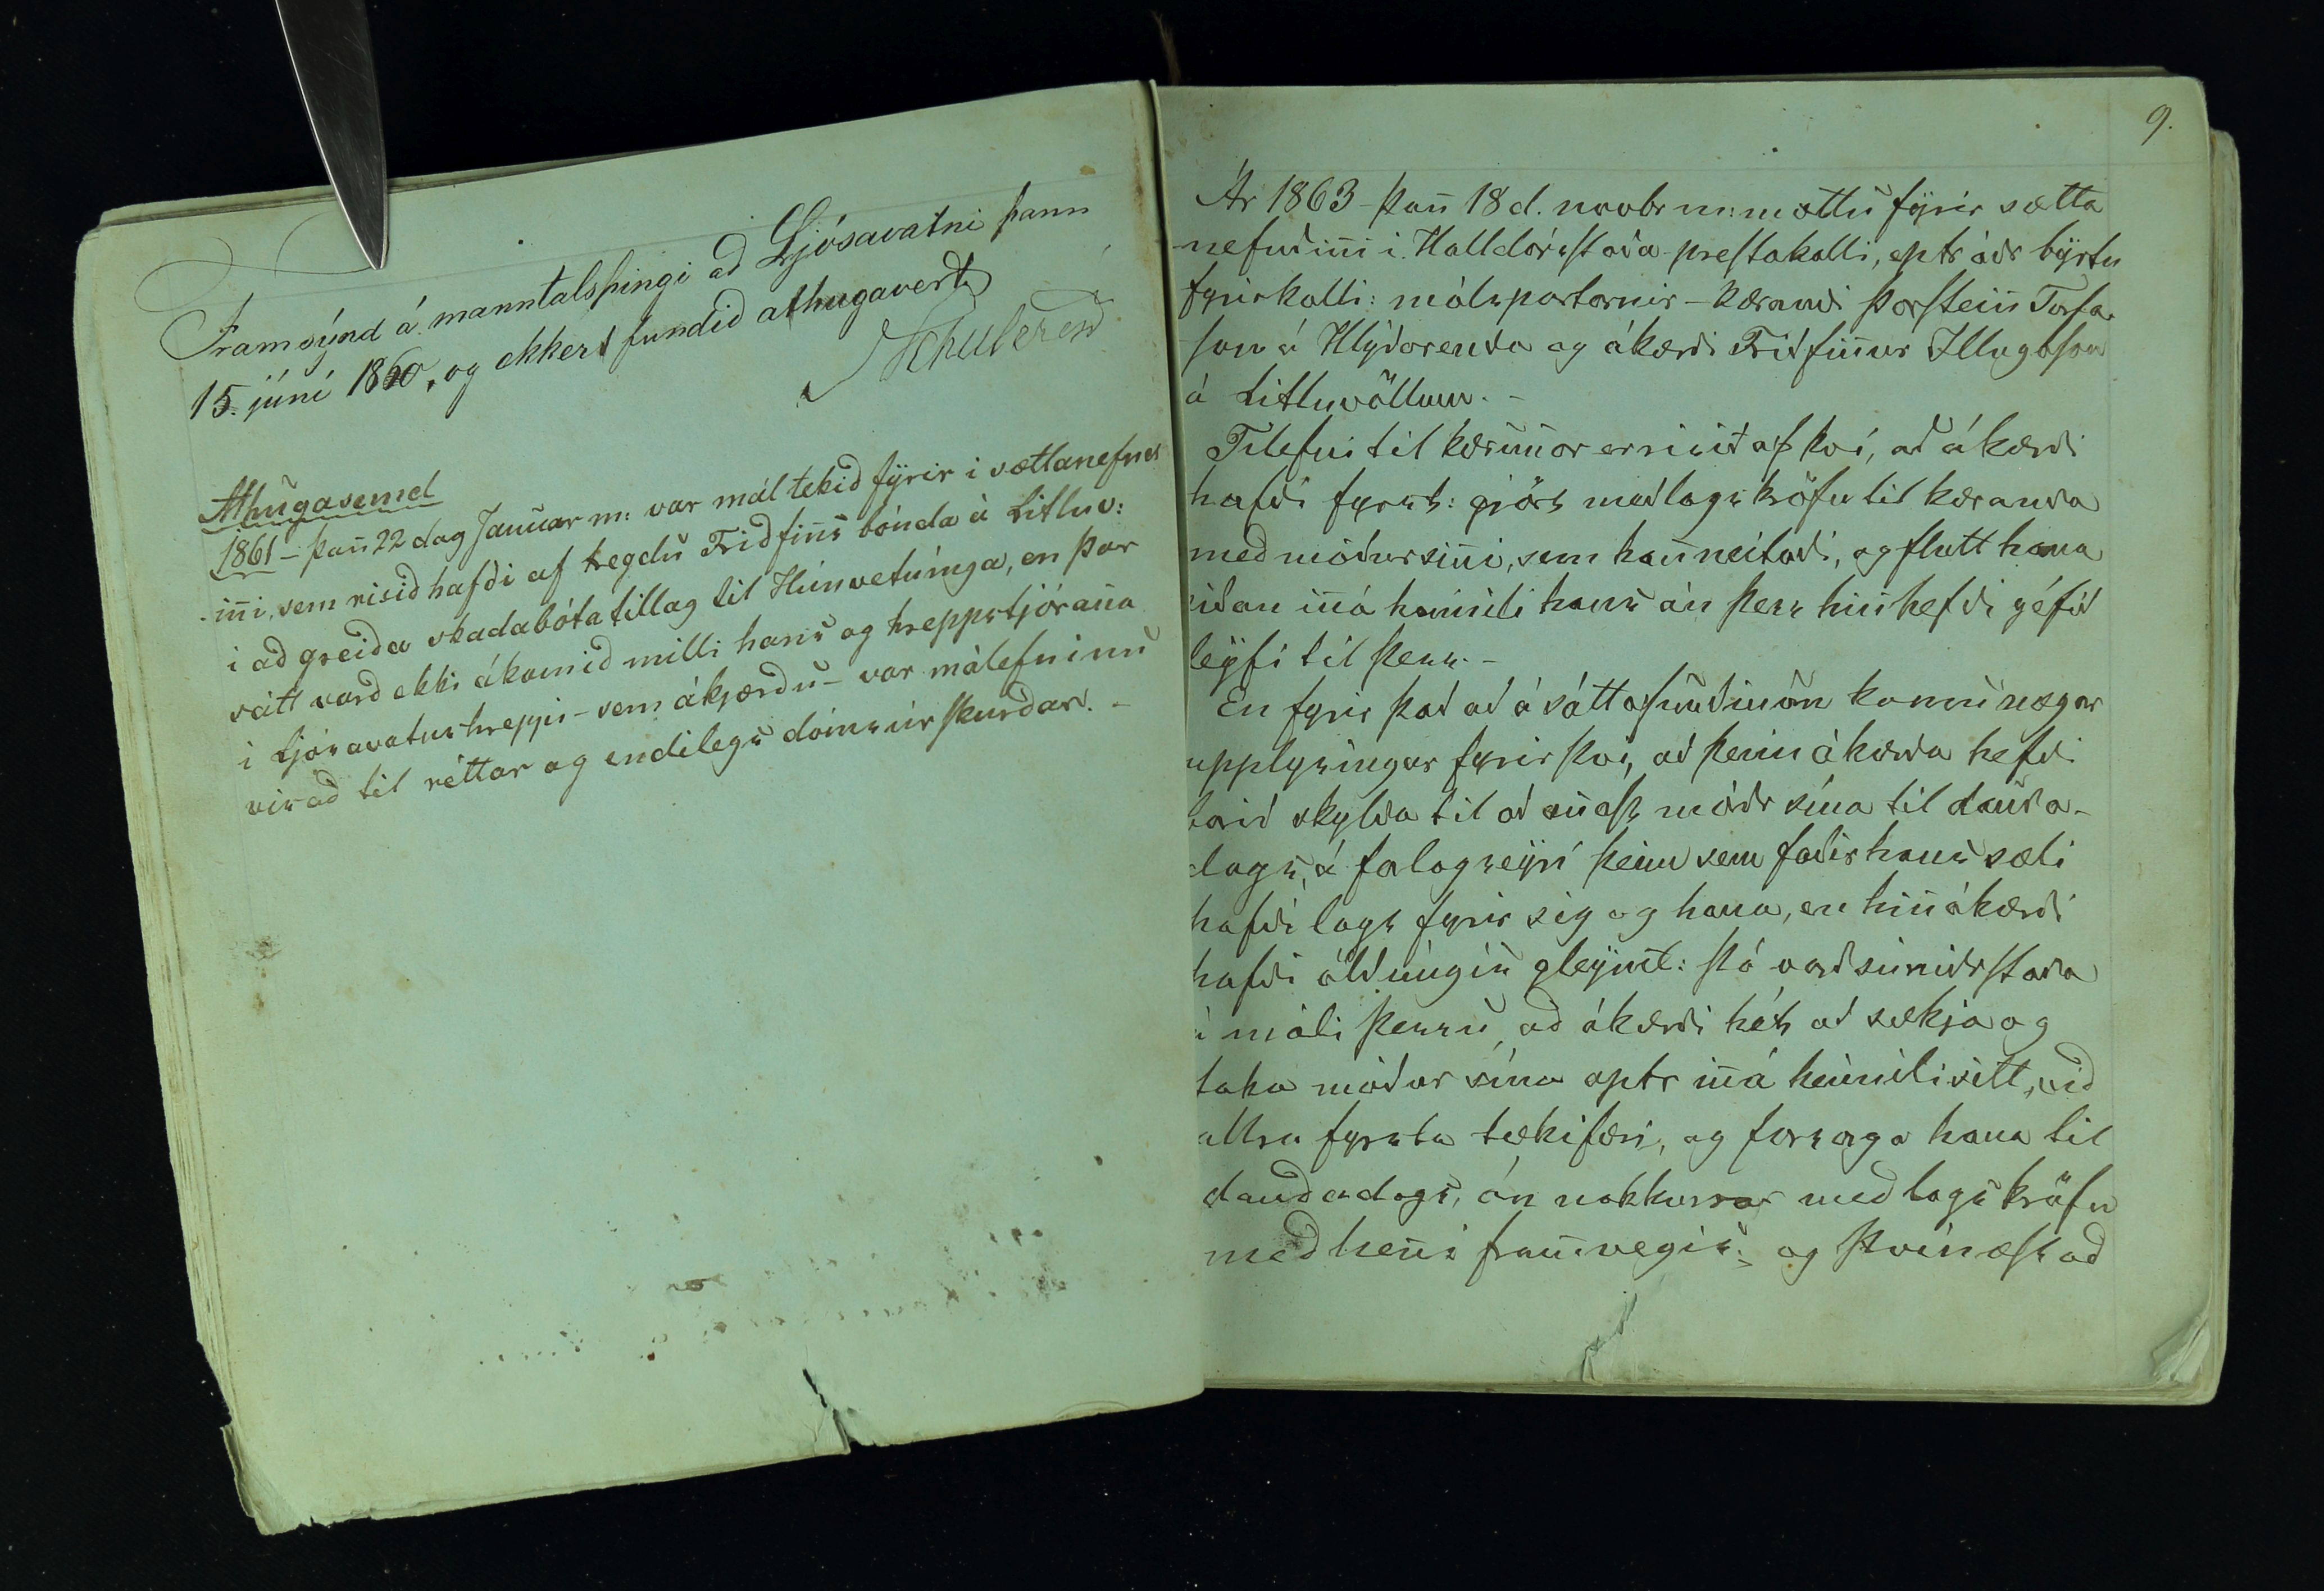 Framsýnd á manntalsþingi að Ljósavatni þann
15. júní 1860, og ekkert fundið athugavert
Schulesen
Athugasemd
1861 – þan̄ 22 dag Januar m: var mál tekið fyrir i sættanefnd
-in̄i, sem risið hafði af tregdu Friðfin̄s bónda á Litluv:
i að greiða skaðabóta tillag til Húnvetnínga, en þar
sátt varð ekki ákomið milli hans og hreppstjóran̄a
i Ljósavatnshreppi – sem ákjærðu – var málefninu
visað til réttar og endilegs dóms úrskurðar. –
9.
Ár 1863 – þan̄ 18 d. novbr m: mættu fyrir sætta
-nefndin̄i i Halldórsstaða prestakalli, eptr áðr byrtu
fyrirkalli: málspartarnir – kærandi Þorstein̄ Torfa-
son á Hlýðarenda og ákærði Friðfin̄ur Illugason
á Litluvöllum. –
Tilefni til kærun̄ar er risið af því, að ákærði
hafði fyrst: gjört meðlags kröfu til kæranda
með móður sin̄i, sem han̄ neitaði, og flutt hana
síðan in̄á heimili hans án þess hin̄ hefði géfið
leyfi til þess. –
En fyrir það að á sáttafundinum komu nægar
upplysingar fyrir því, að þeim ákærða hefði
borið skylda til að an̄ast móðr sína til dauða-
dags, á forlagseyri þeim sem faðir hans sæli
hafði lagt fyrir sig og hana, en hin̄ ákærði
hafði öldúngis gleymt: þá varð sú niðrstaða
á máli þessu, að ákærði hét að sækja og
taka móður sína aptr in̄á heimili sitt, við
allra fyrsta tækifæri, og forsorga hana til
dauðadags, án nokkurrar meðlags kröfu
með hen̄i fram̄vegis; og þvínæst að